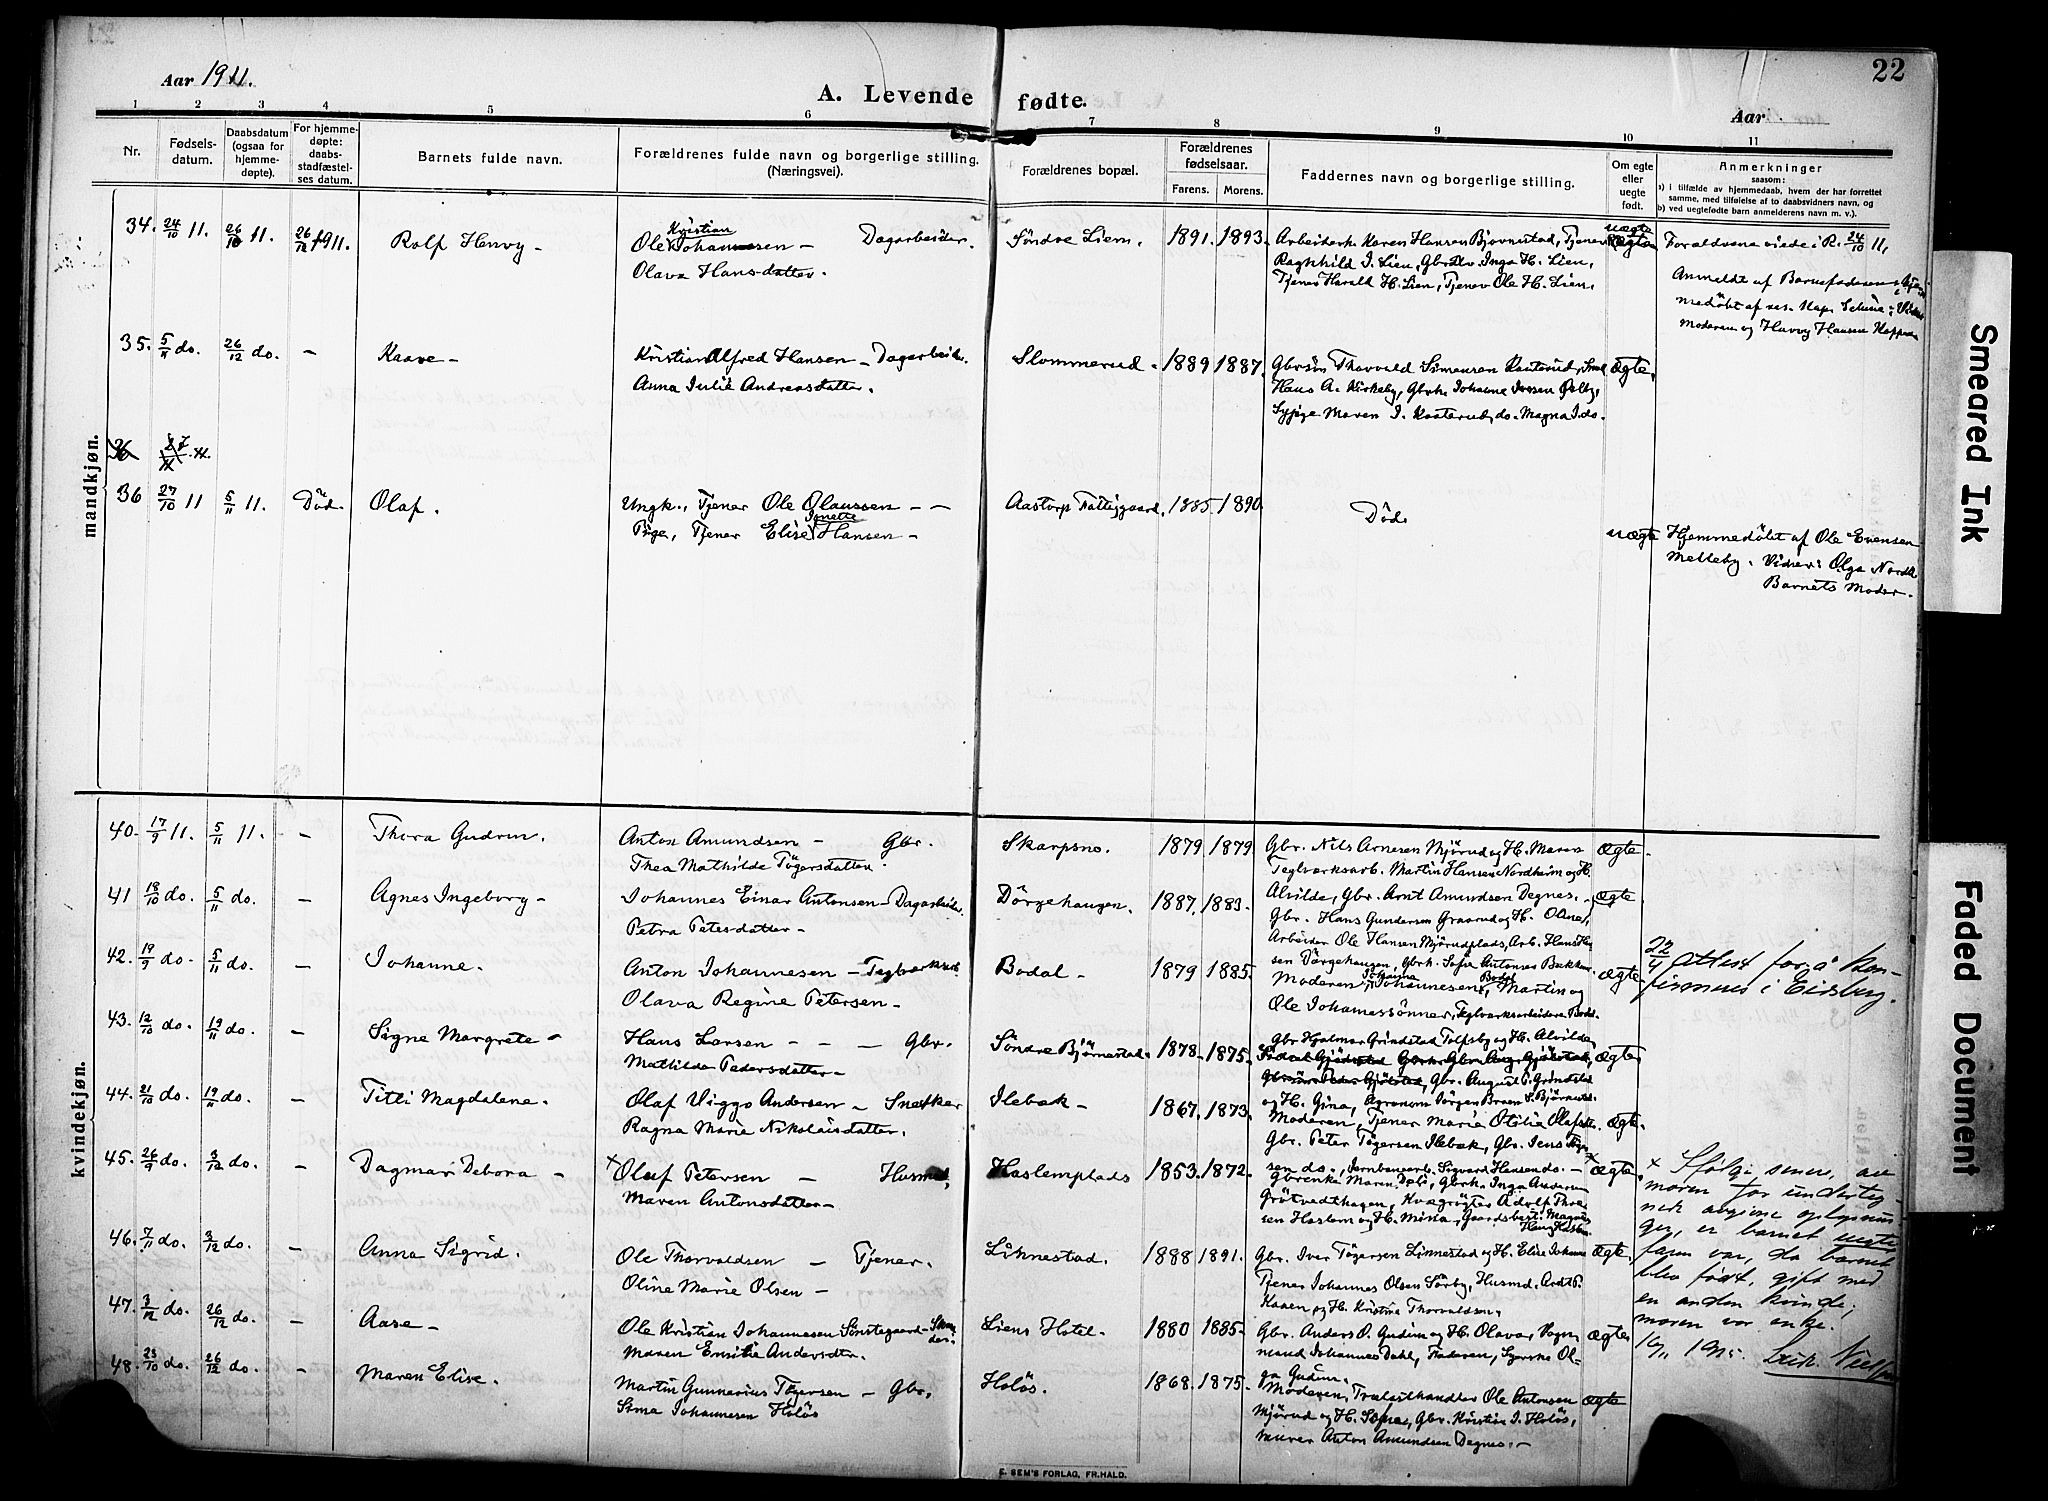 Aar 1911.
A. Levende fødte.
Aar
22
1 2 3 4 5 6 7 8 9 10 11
Nr.
Fødsels-
datum.
Daabsdatum
(ogsaa for
hjemme-
døpte).
For hjemme-
døpte:
daabs-
stadfæstel-
ses datum.
Barnets fulde navn.
Forældrenes fulde navn og borgerlige stilling.
(Næringsvei).
Forældrenes bopæl.
Forældrenes
fødselsaar.
Farens. Morens.
Faddernes navn og borgerlige stilling.
Om egte
eller
uegte
født.
Anmerkninger
saasom:
a) i tilfælde av hjemmedaab, hvem der har forrettet
samme, med tilføielse af to daabsvidners navn, og
b) ved uegtefødte barn anmelderens navn m. v.).
mandkjøn.
34. 24/10 11. 26/10 11. 26/12 1911. Rolf Henry – Ole Kristian Johannessen – Dagarbeider. Søndre Liem. 1891. 1893. uægte
Olava Hansdatter.
Arbeiderk. Karen Hansen Bjørnestad, Tjener
Ragnhild I. Lien, Gbrdtr. Inga H. Lien,
Tjener Harald H. Lien, Tjener Ole H. Lien.
Forældrene viede i R. 24/10 11,
Anmeldt af Barnefaderen
medøbt af res. Kap.
Moderen og Harry Hansen
35. 5/11 do. 26/12 do. – Kaare – Kristian Alfred Hansen – Dagarbeider. Slommerud – 1889 1887. ægte.
Anna Julie Andreasdatter.
Gbrsøn Thorvald Simensen
Hans A. Kirkeby, Gbrk. Johanne Iversen
Sypige Maren I. Kasterud, do. Magna I. do.
36
36 27/10 11 5/11 11. Død. Olaf. Ungk., Tjener Ole Olaussen – – Aastorp Fattiggaard. 1885. 1890. Død.
Pige, Tjener Elise Janette Hansen –
uægte Hjemmedøbt af Ole Evensen
Melleby. Vidner: Olga
Barnets Moder.
kvindekjøn.
40. 17/9 11. 5/11 11. – Thora Gudrun. Anton Amundsen – Gbr. Skarpsno. 1879 1879 ægte
Thea Mathilde Tøgersdatter.
Gbr. Nils Arnesen Mjørud og H. Maren
Teglværksarb. Martin Hansen Nordheim og H.
41 18/10 do. 5/11 do. – Agnes Ingeborg – Johannes Einar Antonsen – Dagarbeider. Dørgehaugen. 1887. 1883. ægte
Petra Petersdatter –
Alvilde, Gbr. Arnt Amundsen Degnes. –
Gbr. Hans Gundersen Graarud og H. Oline,
Arbeider Ole Hansen Mjørudplads, Arb. Hans Han-
42. 19/9 do. 5/11 do. – Johanne. Anton Johannesen – Teglværksarb. Bodal – 1879 1885. ægte
Olava Regine Petersen –
sen Dørgehaugen, Gbrk. Sofie Antonsen Bakken
Moderen, Johanne Johannesen Bodal, Martin og
Ole Johannessønner, Teglværksarbeidere Bodal.
22/4 Attest for å kon-
firmeres i Eidsberg.
43. 12/10 do. 19/11 do. – Signe Margrete – Hans Larsen – – – Gbr. Søndre Bjørnestad. 1878. 1875. ægte
Mathilde Pedersdatter –
Gbr. Hjalmar Grindstad Tolfsby og H. Alvilde,
Gbr. August P. Grindstad
og H. Gina, Agronom Jørgen Braen S. Bjørnestad.
44. 21/10 do. 19/11 do. – Titti Magdalene. Olaf Viggo Andersen – Snekker Ilebæk – 1867. 1873. ægte.
Ragna Marie Nikolaisdatter.
Moderen, Tjener Marie Otilie
Gbr. Peter Tøgersen Ilebæk, Gbr. Jens Tøger-
45. 26/9 do. 3/12 do. – Dagmar Debora – × Oluf Petersen – Husmd. Haslemplads 1853. 1872. × ægte.
Maren Antonsdatter –
sen do., Jernbanearb. Sigvard Hansen do. –
Gbrenke Maren Dæli, Gbrk. Inga Andersen
Grøtvedthagen, Kvægrøgter Adolf Thor-
sen Haslem og H. Mina, Gaardsbest. Magnus
× Ifølge senere, av
moren for underteg-
nede avgivne oplysnin-
ger, er barnet uegte.
faren var, da barnet
blev født, gift med
en anden kvinde;
moren var enke.
46. 7/11 do. 3/12 do. – Anna Sigrid. Ole Thorvaldsen – Tjener. Linnestad. 1888 1891. ægte,
Oline Marie Olsen –
Gbr. Iver Tøgersen Linnestad og H. Elise
Tjener Johannes Olsen Sørby, Husmd. Arnt P.
Kaaen og H. Kristine Thorvaldsen.
47. 3/12 do. 26/12 do. – Aase – Ole Kristian Johannesen Sønstegaard – Skrædder. Liens Hotel – 1880 1885. ægte
Maren Emilie Andersdtr.
Gbr. Anders O. Gudim og H. Olava, Vogn-
mand Johannes Dahl, Faderen, Syerske Ol-
ga Gudim.
48. 23/10 do. 26/12 do. – Maren Elise. Martin Gunnerius Tøgersen – Gbr. Holøs. 1868. 1875. ægte
Sina Johannesen Holøs
Moderen, Trælasthandler Ole Antonsen
Mjørud og H. Sofie, Gbr. Kristian I. Holøs,
Murer Anton Amundsen Degnes. –
E. SEM'S FORLAG, FR.HALD.
Smeared Ink
Faded Document